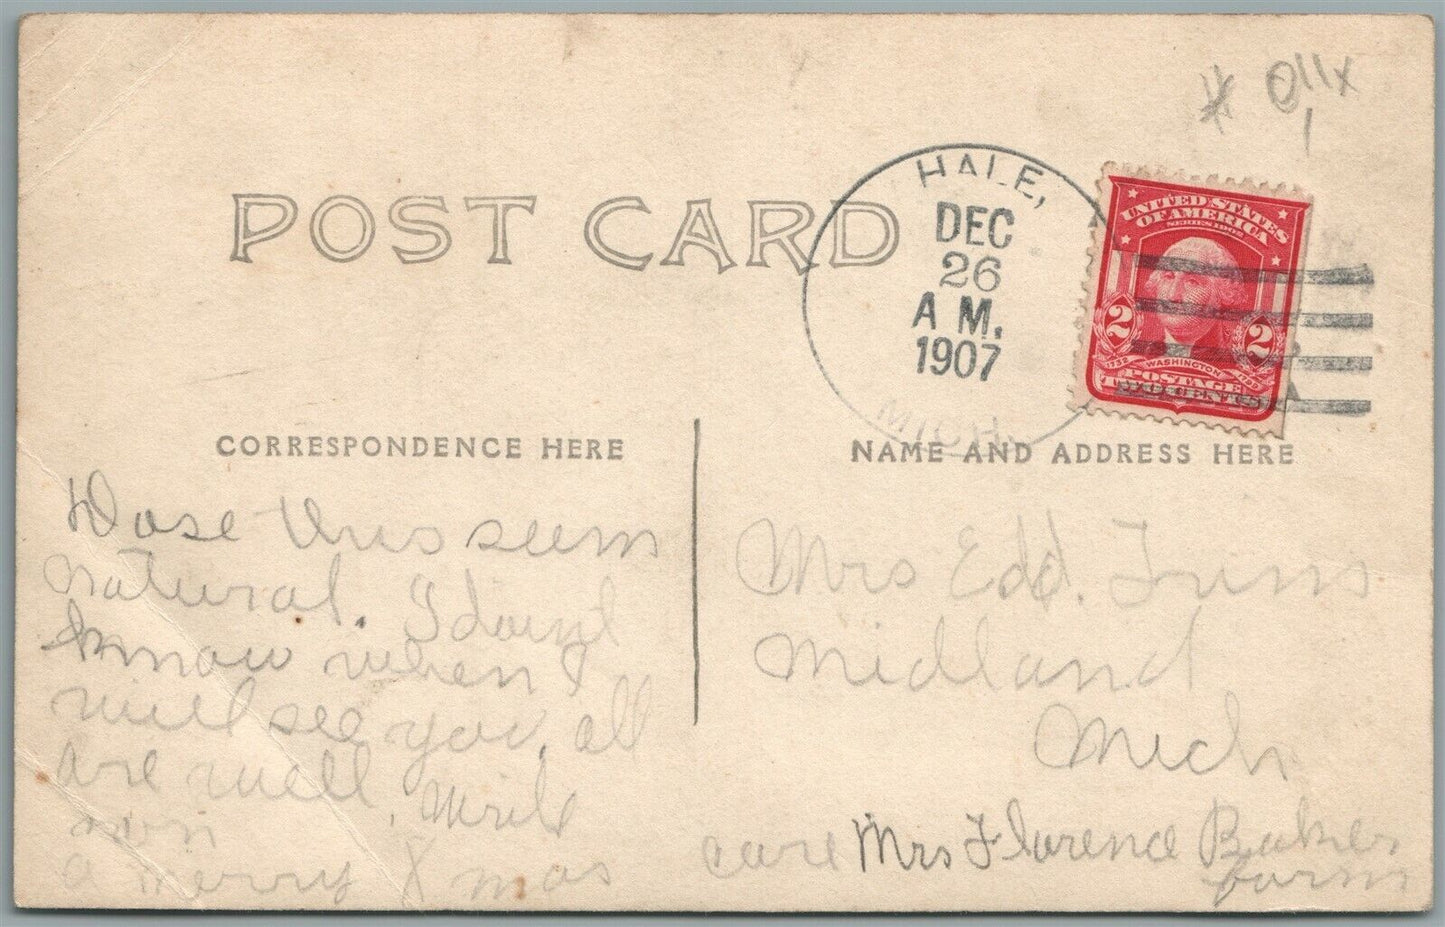 POST CARD
HALE,
DEC
26
A M.
1907
MICH.
UNITED STATES
OF AMERICA
SERIES 1902
2 2
1732 WASHINGTON 1799
POSTAGE
TWO CENTS
CORRESPONDENCE HERE
Dose this seem
natural. I dount
know when I
will see you, all
are well, write
a merry Xmas
NAME AND ADDRESS HERE
Mrs Edd.
Midland
Mich
care Mrs Florence Baker
farm